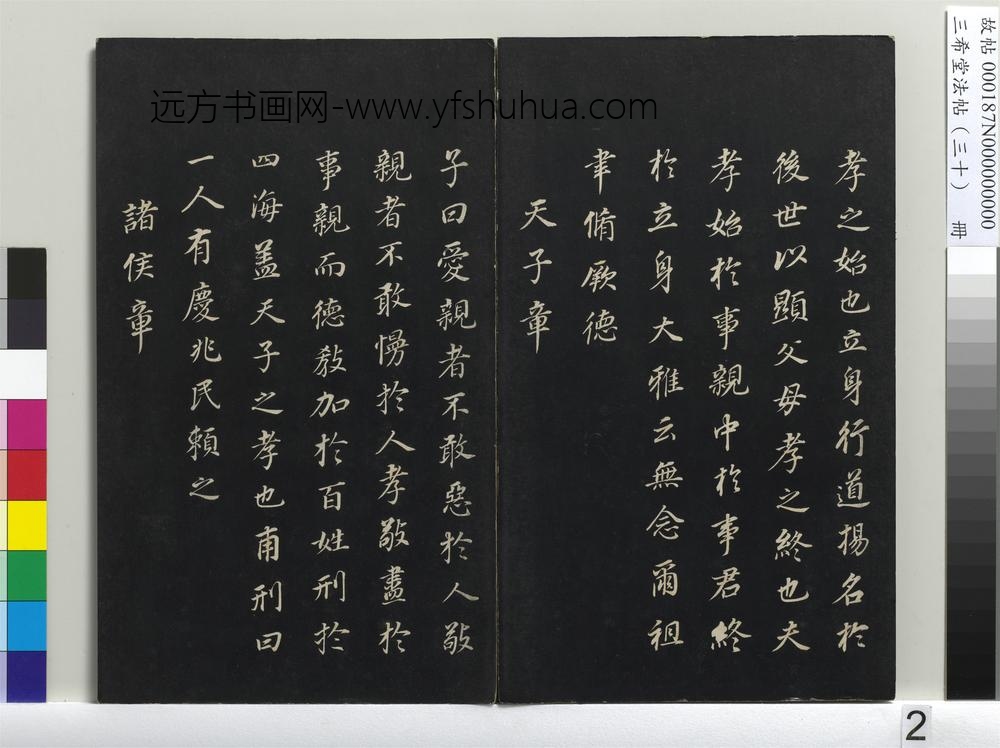 孝之始也立身行道揚名於
後世以顯父母孝之終也夫
孝始於事親中於事君終
於立身大雅云無念爾祖
聿脩厥德
天子章
子曰愛親者不敢惡於人敬
親者不敢慢於人孝敬盡於
事親而德教加於百姓刑於
四海盖天子之孝也甫刑曰
一人有慶兆民賴之
諸侯章
远方书画网-www.yfshuhua.com
故帖 000187N000000000
三希堂法帖(三十) 冊
2